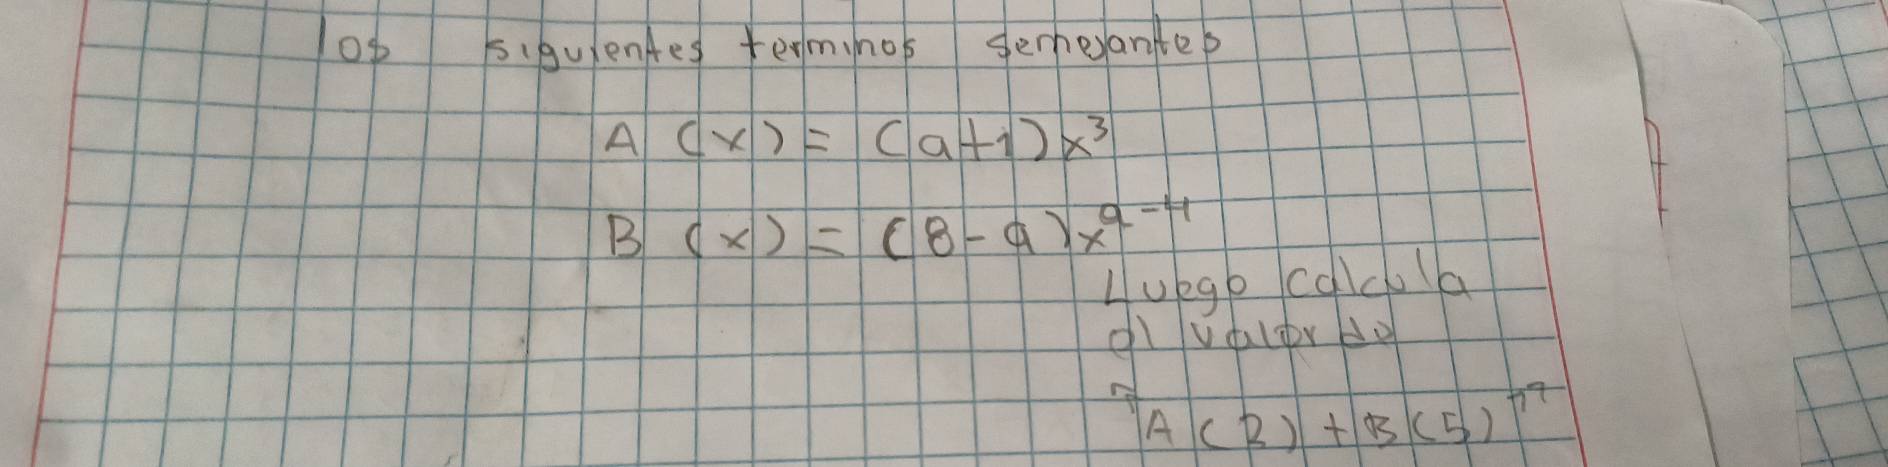 los siguientes terminos semejantes
A (x) = (a+1)x³
B (x) = (8-a)x^a-4
Luego calcula
el valor de
"A(2)+B(5)"